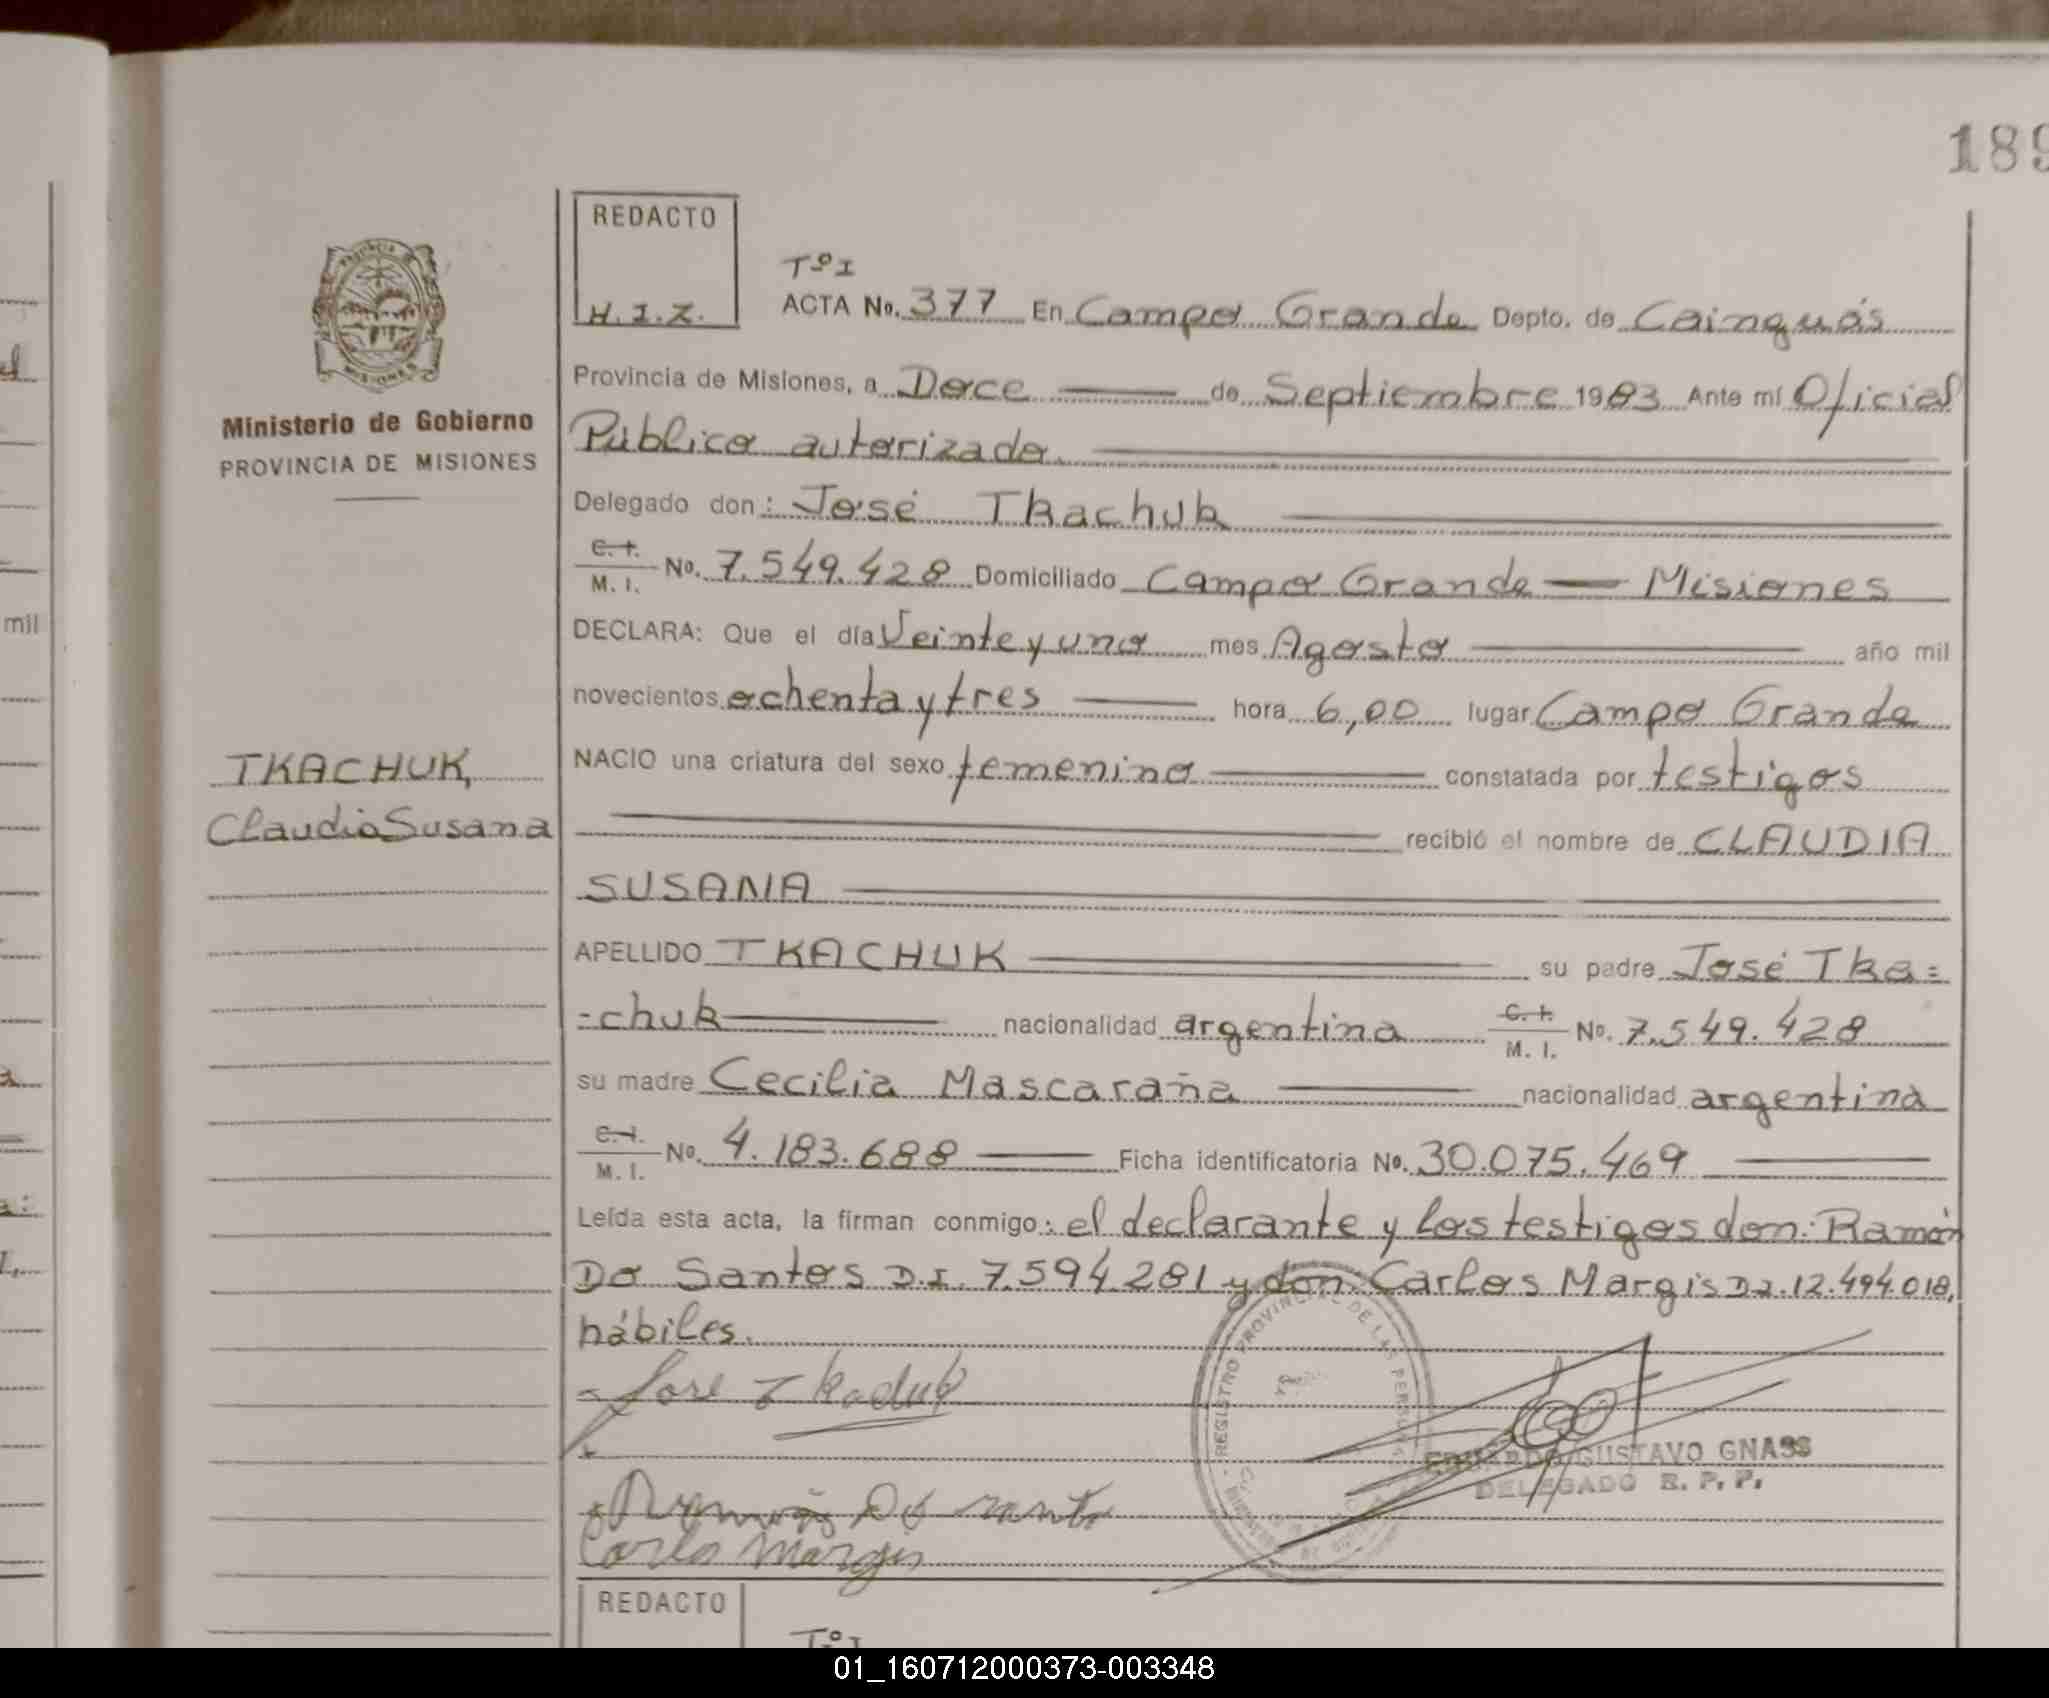 189
REDACTO
H.I.Z.
Tº I
ACTA No. 377 En Campo Grande Depto. de Cainguás
Provincia de Misiones, a Doce de Septiembre 1983 Ante mí Oficial
Público autorizado.
Delegado don: José Tkachuk
C. I. M. I. No. 7.549.428 Domiciliado Campo Grande — Misiones
DECLARA: Que el día Veinte y uno mes Agosto año mil
novecientos ochenta y tres hora 6,00 lugar Campo Grande
NACIO una criatura del sexo femenino constatada por testigos
recibió el nombre de CLAUDIA
SUSANA
APELLIDO TKACHUK su padre José Tka=
=chuk nacionalidad argentina C. I. M. I. No. 7.549.428
su madre Cecilia Mascaraña nacionalidad argentina
C. I. M. I. No. 4.183.688 Ficha identificatoria No. 30.075.469
Leída esta acta, la firman conmigo: el declarante y los testigos don: Ramón
Do Santos D.I. 7.594.281 y don: Carlos Margis D.I. 12.494.018,
hábiles.
José Tkachuk
Ramón Do Santo
Carlos Margis
REGISTRO PROVINCIAL DE LAS PERSONAS
EDUARDO GUSTAVO GNASS
DELEGADO R. P. P.
REDACTO
Tº I
PROVINCIA
MISIONES
Ministerio de Gobierno
PROVINCIA DE MISIONES
TKACHUK,
Claudia Susana
mil
01_160712000373-003348